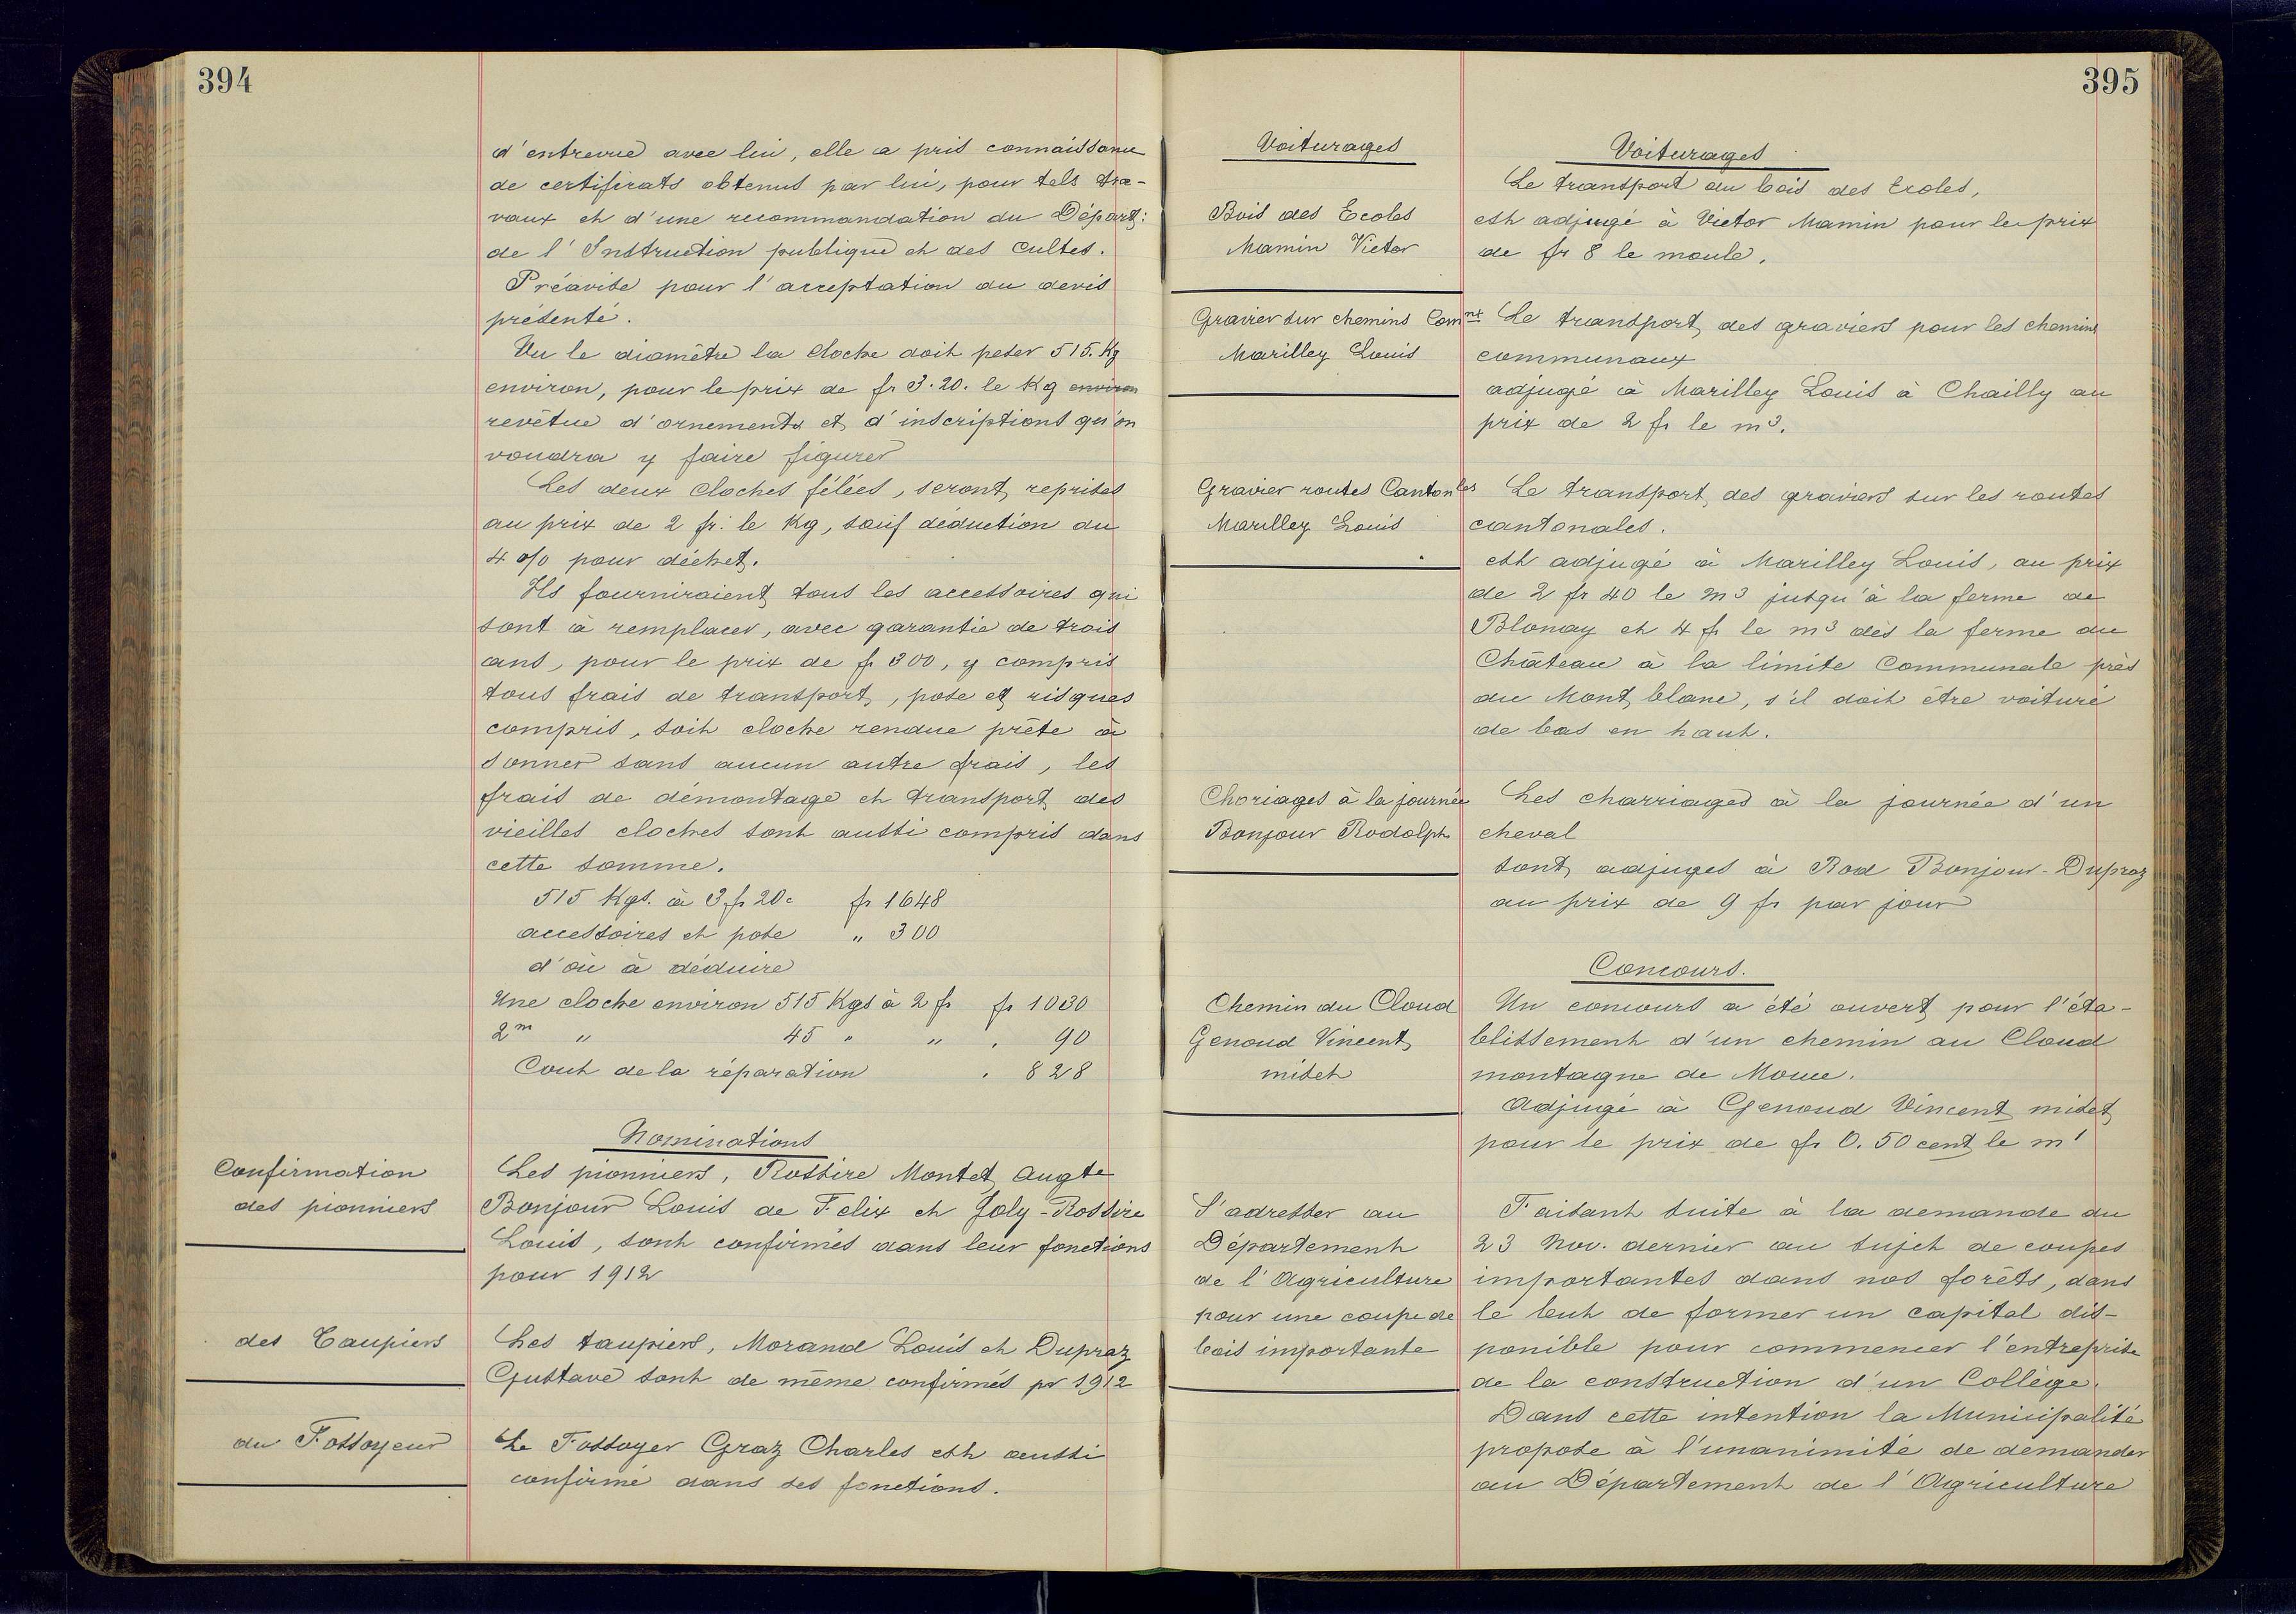 394
d'entrevue avec lui, elle a pris connaissance
de certificats obtenus par lui, pour tels tra-
vaux et d'une recommandation du Départ:
de l'Instruction publique et des Cultes.
Préavise pour l'acceptation du devis
présenté.
Vu le diamètre la cloche doit peser 515. Kg
environ, pour le prix de fr 3.20. le Kg environ
revêtue d'ornements et d'inscriptions qu'on
voudra y faire figurer
Les deux cloches fêlées, seront reprises
au prix de 2 fr. le Kg, sauf déduction du
4 o/o pour déchet.
Ils fourniraient tous les accessoires qui
sont à remplacer, avec garantie de trois
ans, pour le prix de fr 300, y compris
tous frais de transport, pose et risques
compris, soit cloche rendue prête à
sonner sans aucun autre frais, les
frais de démontage et transport des
vieilles cloches sont aussi compris dans
cette somme.
515 Kgs. à 3 fr 20 c fr 1648
accessoires et pose " 300
d'où à déduire
Une cloche environ 515 Kgs à 2 fr fr 1030
2m " 45 " " . 90
Cout de la réparation . 828
Nominations
Confirmation
des pionniers
Les pionniers, Rossire Montet Augte
Bonjour Louis de Felix et Joly-Rossire
Louis, sont confirmés dans leur fonctions
pour 1912
des Taupiers
Les taupiers, Morand Louis et Dupraz
Gustave sont de même confirmés pr 1912
du Fossoyeur
Le Fossoyer Graz Charles est aussi
confirmé dans ses fonctions.
395
Voiturages
Voiturages
Bois des Ecoles
Mamin Victor
Le transport du bois des Ecoles,
est adjugé à Victor Mamin pour le prix
de fr 8 le moule.
Gravier sur chemins Comnx
Marilley Louis
Le transport des graviers pour les chemins
communaux
adjugé à Marilley Louis à Chailly au
prix de 2 fr le m3.
Gravier routes Cantonles
Marilley Louis
Le transport des graviers sur les routes
cantonales.
est adjugé à Marilley Louis, au prix
de 2 fr 40 le m3 jusqu'à la ferme de
Blonay et 4 fr le m3 dès la ferme du
Château à la limite Communale près
du Mont blanc, s'il doit être voituré
de bas en haut.
Choriages à la journée
Bonjour Rodolph
Les charriages à la journée d'un
cheval
sont adjugés à Rod Bonjour-Dupraz
au prix de 9 fr par jour
Concours.
Chemin du Cloud
Genoud Vincent
midet
Un concours a été ouvert pour l'éta-
blissement d'un chemin au Cloud
montagne de
Adjugé à Genoud Vincent midet
pour le prix de fr 0.50 cent le m'
S'adresser au
Département
de l'Agriculture
pour une coupe de
bois importante
Faisant suite à la demande du
23 Nov. dernier au sujet de coupes
importantes dans nos forêts, dans
le but de former un capital dis-
ponible pour commencer l'entreprise
de la construction d'un Collège.
Dans cette intention la Municipalité
propose à l'unanimité de demander
au Département de l'Agriculture